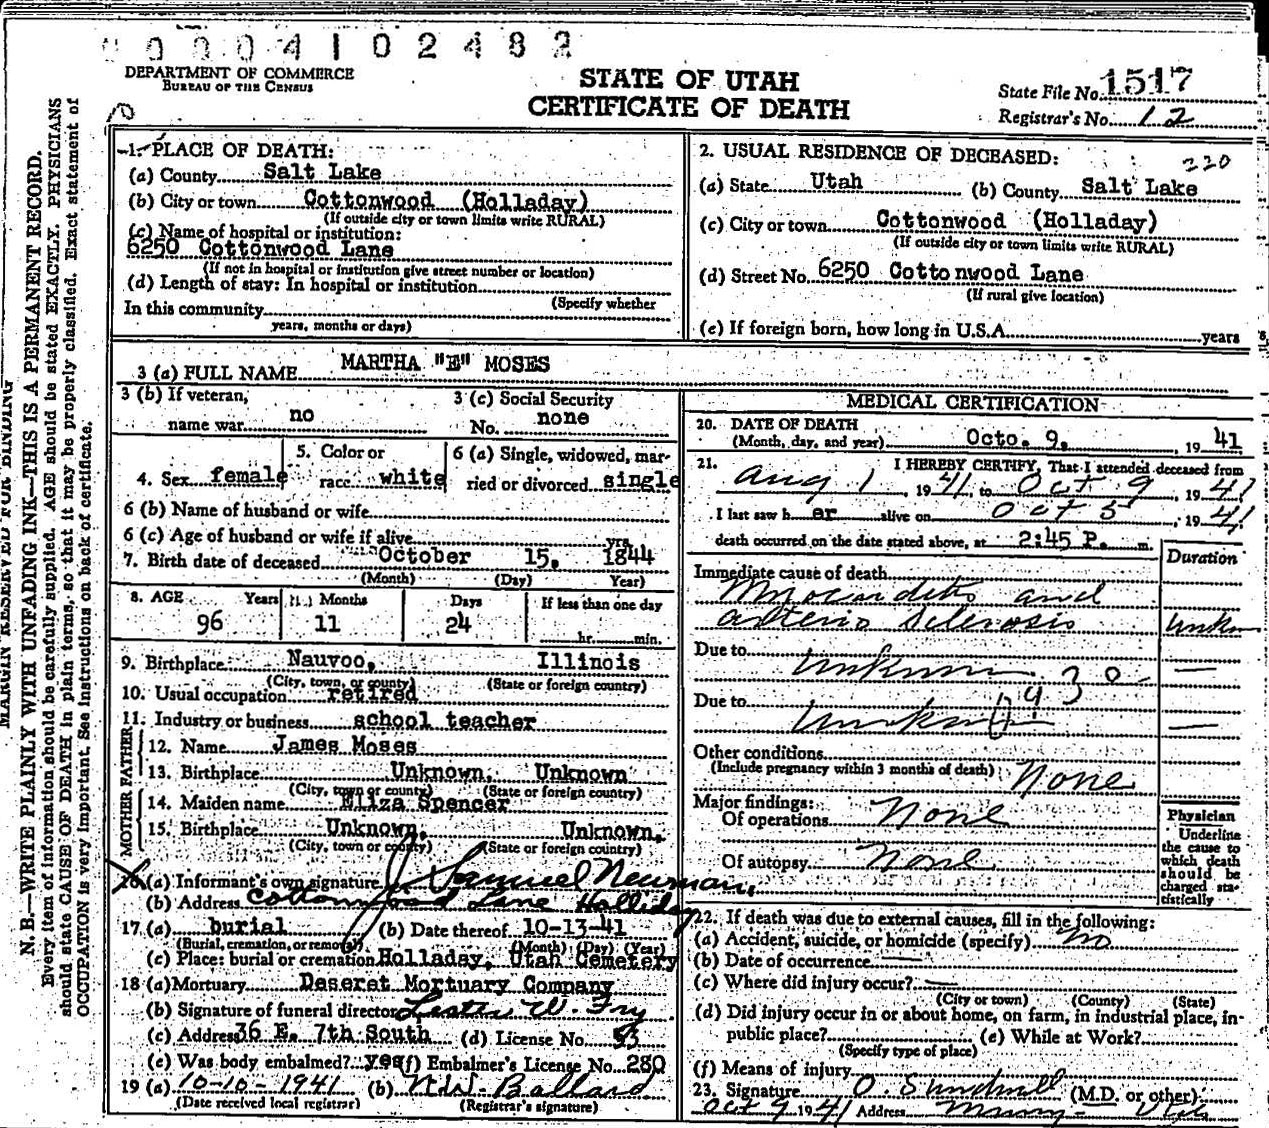 0004102482
DEPARTMENT OF COMMERCE
BUREAU OF THE CENSUS
STATE OF UTAH
CERTIFICATE OF DEATH
State File No. 1517
Registrar's No. 12
MARGIN RESERVED FOR BINDING
N. B.—WRITE PLAINLY WITH UNFADING INK—THIS IS A PERMANENT RECORD.
Every item of information should be carefully supplied. AGE should be stated EXACTLY. PHYSICIANS
should state CAUSE OF DEATH in plain terms, so that it may be properly classified. Exact statement of
OCCUPATION is very important. See instructions on back of certificate.
1. PLACE OF DEATH:
(a) County Salt Lake
(b) City or town Cottonwood (Holladay)
(If outside city or town limits write RURAL)
(c) Name of hospital or institution:
6250 Cottonwood Lane
(If not in hospital or institution give street number or location)
(d) Length of stay: In hospital or institution
(Specify whether
In this community
years, months or days)
2. USUAL RESIDENCE OF DECEASED: 220
(a) State Utah (b) County Salt Lake
(c) City or town Cottonwood (Holladay)
(If outside city or town limits write RURAL)
(d) Street No. 6250 Cottonwood Lane
(If rural give location)
(e) If foreign born, how long in U.S.A. years
3 (a) FULL NAME MARTHA "E" MOSES
3 (b) If veteran,
name war no
3 (c) Social Security
No. none
4. Sex female
5. Color or
race white
6 (a) Single, widowed, mar-
ried or divorced single
6 (b) Name of husband or wife
6 (c) Age of husband or wife if alive yrs.
7. Birth date of deceased October 15, 1844
(Month) (Day) Year)
8. AGE Years Months Days If less than one day
96 11 24 hr. min.
9. Birthplace Nauvoo, Illinois
(City, town, or county) (State or foreign country)
10. Usual occupation retired
11. Industry or business school teacher
FATHER
12. Name James Moses
13. Birthplace Unknown, Unknown
(City, town or county) (State or foreign country)
MOTHER
14. Maiden name Eliza Spencer
15. Birthplace Unknown, Unknown,
(City, town or county) (State or foreign country)
16 (a) Informant's own signature J. Samuel Neuman,
(b) Address Cottonwood Lane Holliday
17 (a) burial (b) Date thereof 10-13-41
(Burial, cremation, or removal) (Month) (Day) (Year)
(c) Place: burial or cremation Holladay, Utah Cemetery
18 (a) Mortuary Deseret Mortuary Company
(b) Signature of funeral director Lester W. Fry
(c) Address 36 E. 7th South (d) License No. 53
(e) Was body embalmed? yes (f) Embalmer's License No. 280
19 (a) 10-10-1941 (b) N.W. Ballard
(Date received local registrar) (Registrar's signature)
MEDICAL CERTIFICATION
20. DATE OF DEATH
(Month, day, and year) Octo. 9, 1941
21. I HEREBY CERTIFY, That I attended deceased from
Aug 1, 1941 to Oct 9, 1941
I last saw her alive on Oct 5, 1941
death occurred on the date stated above, at 2:45 P. m.
Duration
Immediate cause of death
Myocarditis and
arterio Sclerosis unkn
Due to unknown 30 —
Due to unknown 093 —
Other conditions
(Include pregnancy within 3 months of death) None
Major findings:
Of operations None
Of autopsy None
Physician
Underline
the cause to
which death
should be
charged sta-
tistically
22. If death was due to external causes, fill in the following:
(a) Accident, suicide, or homicide (specify) No
(b) Date of occurrence —
(c) Where did injury occur? —
(City or town) (County) (State)
(d) Did injury occur in or about home, on farm, in industrial place, in-
public place? (e) While at Work?
(Specify type of place)
(f) Means of injury
23. Signature O. Sundwall (M.D. or other)
Oct 9 1941 Address Murray - Utah